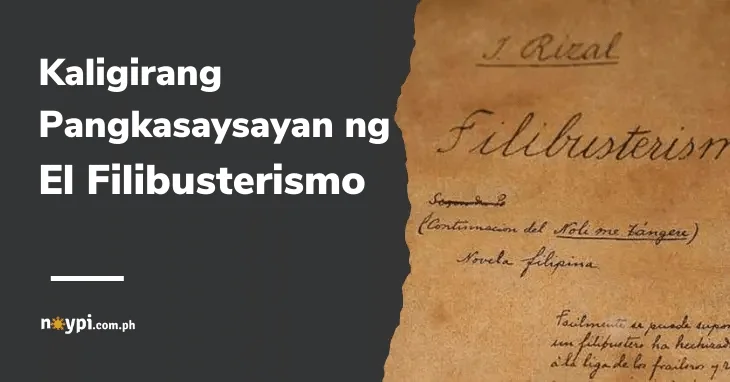 Kaligirang
Pangkasaysayan ng
El Filibusterismo
noypi.com.ph
J. Rizal
Filibusterism
(Continuacion del Noli me tángere)
Novela filipina
Facilmente se puede supon
un filibustero ha hechizad
á la liga de los fraileros y r